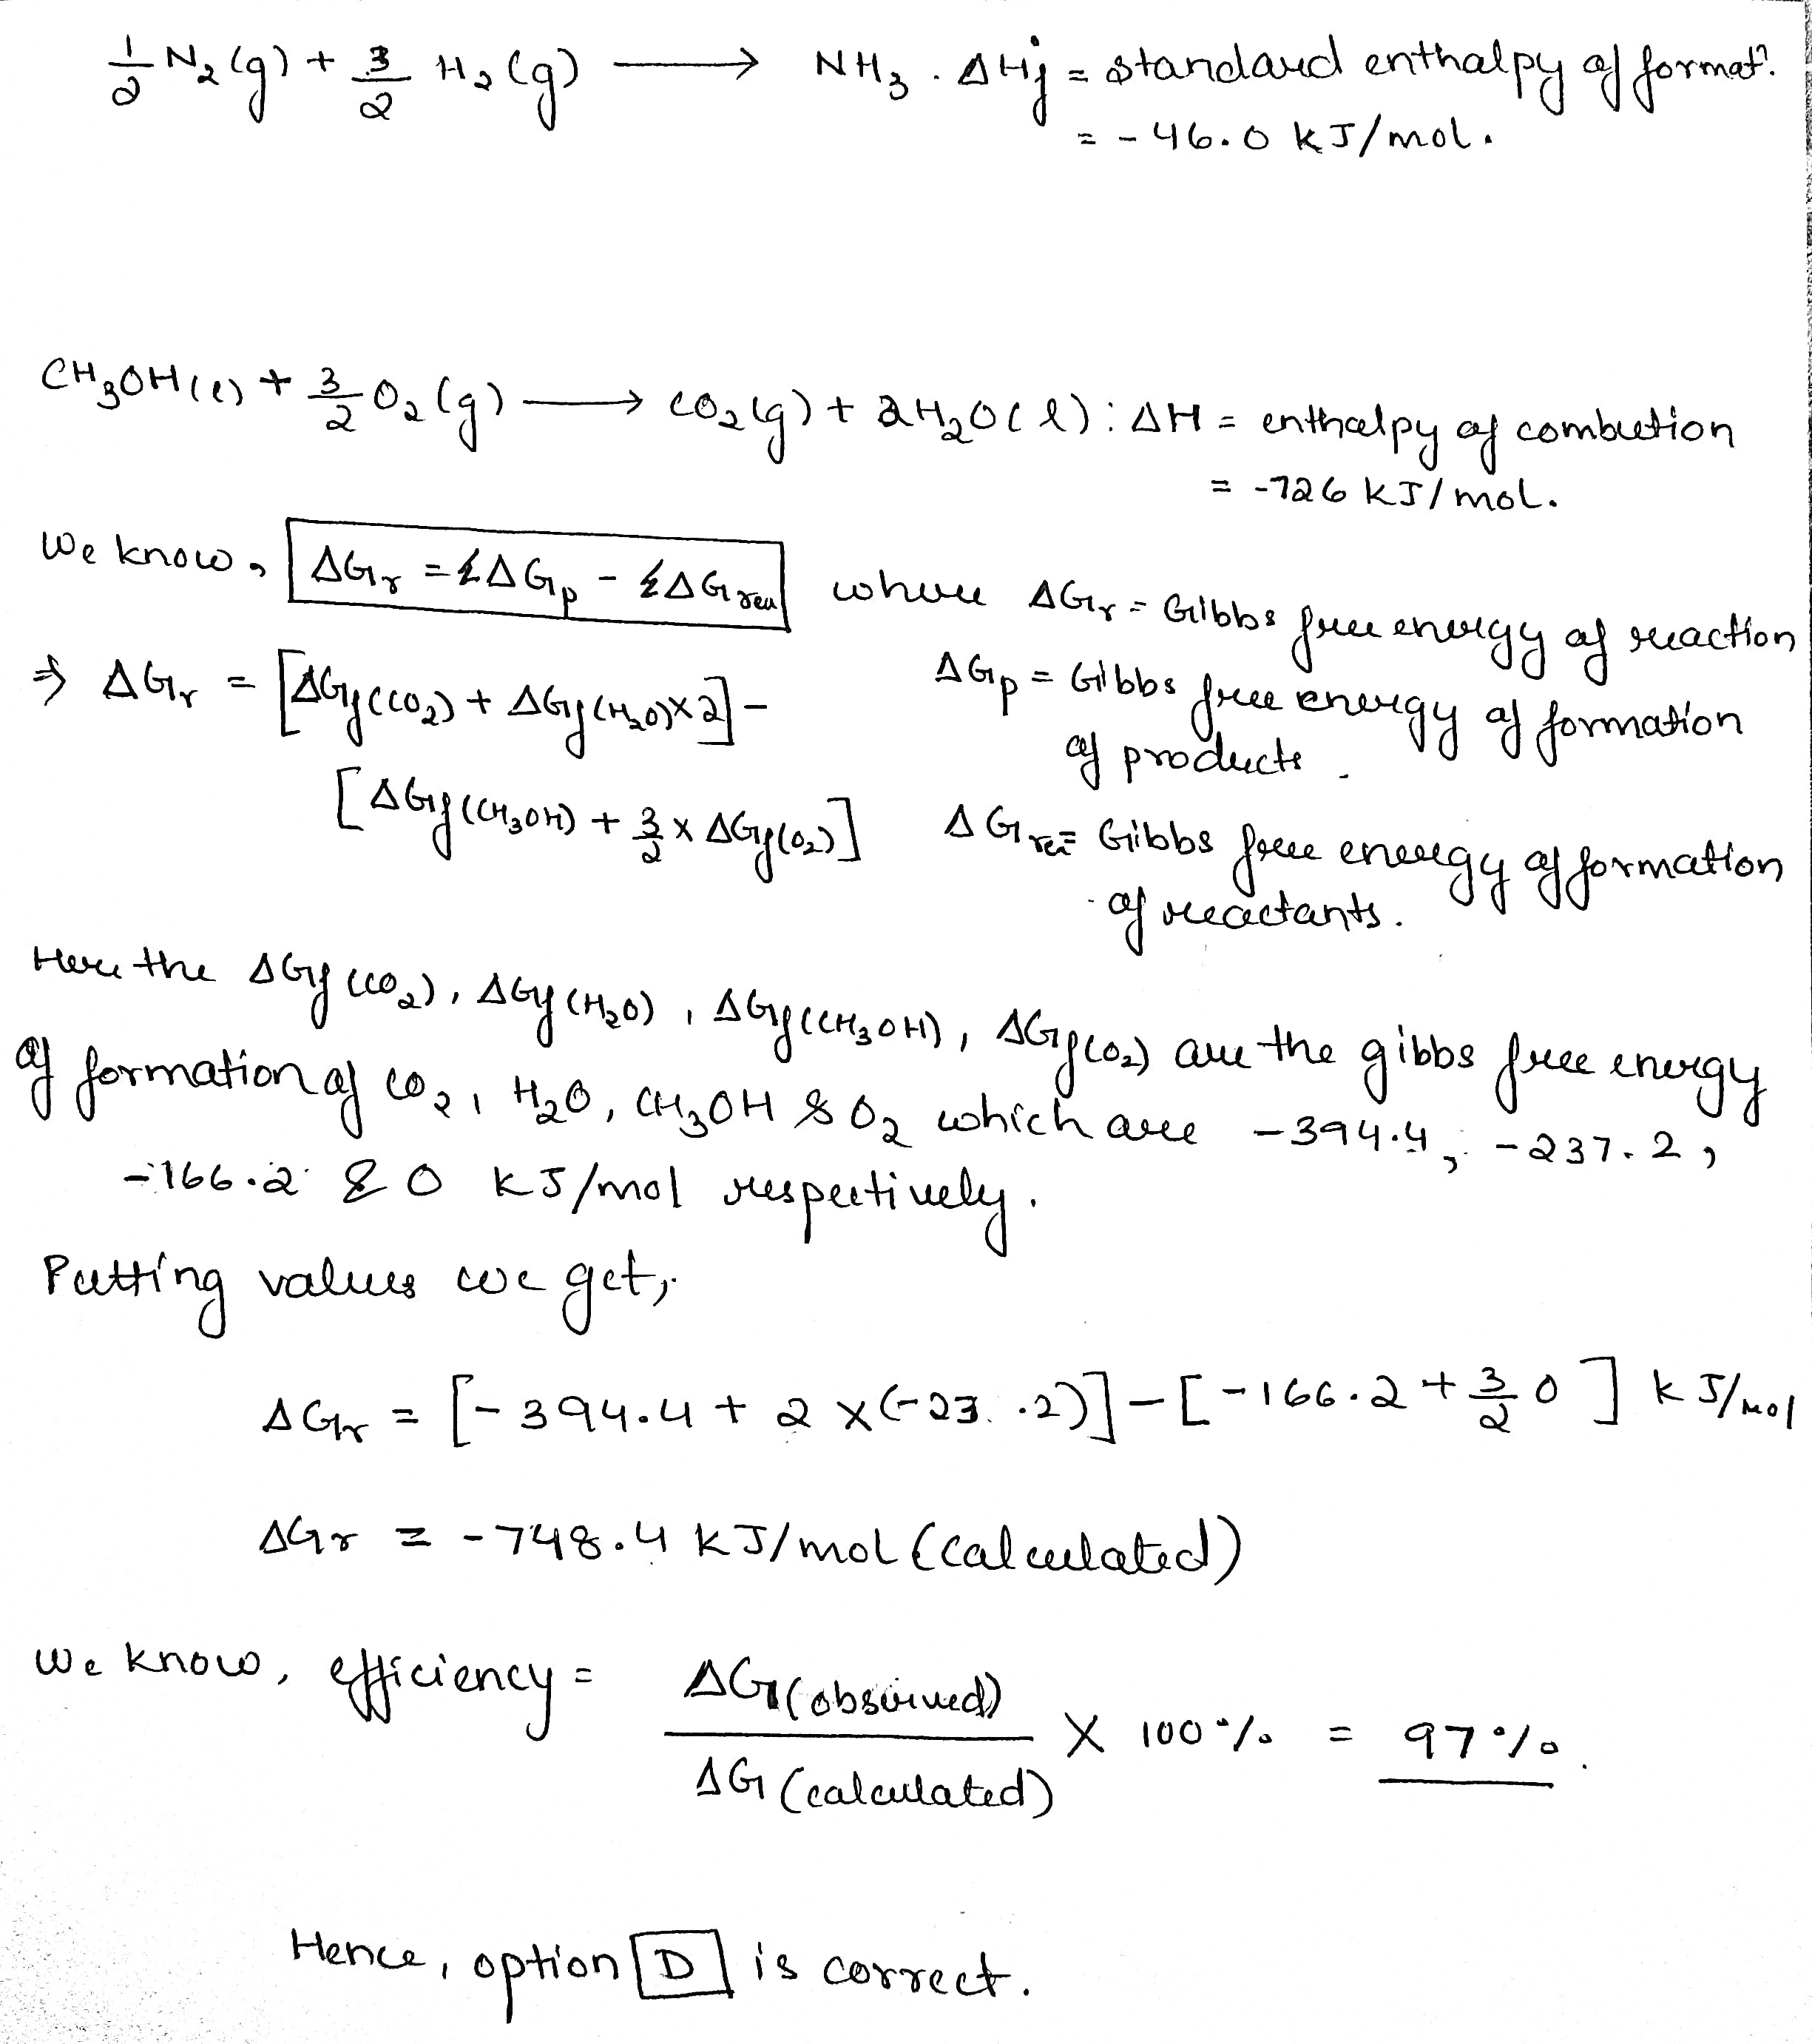 1/2 N₂(g) + 3/2 H₂(g) ⟶ NH₃ . ΔHf° = standard enthalpy of format?.
= -46.0 kJ/mol.
CH₃OH(l) + 3/2 O₂(g) ⟶ CO₂(g) + 2H₂O(l) : ΔH = enthalpy of combution
= -726 kJ/mol.
We know, ΔGr = ΣΔGp - ΣΔGrea where ΔGr = Gibbs free energy of reaction
⇒ ΔGr = [ΔGf(CO₂) + ΔGf(H₂O)×2] -
ΔGp = Gibbs free energy of formation
of products.
[ΔGf(CH₃OH) + 3/2 × ΔGf(O₂)]
ΔGrea = Gibbs free energy of formation
of reactants.
Here the ΔGf(CO₂), ΔGf(H₂O), ΔGf(CH₃OH), ΔGf(O₂) are the gibbs free energy
of formation of CO₂, H₂O, CH₃OH & O₂ which are -394.4, -237.2,
-166.2 & 0 kJ/mol respectively.
Putting values we get,
ΔGr = [-394.4 + 2 × (-23 .2)] - [-166.2 + 3/2 0] kJ/mol
ΔGr = -748.4 kJ/mol (calculated)
We know, efficiency = ΔG(observed) / ΔG(calculated) × 100% = 97%.
Hence, option D is correct.